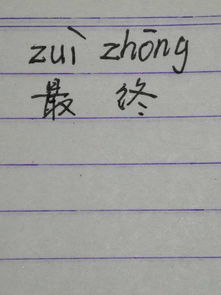 zuì zhōng
最 终